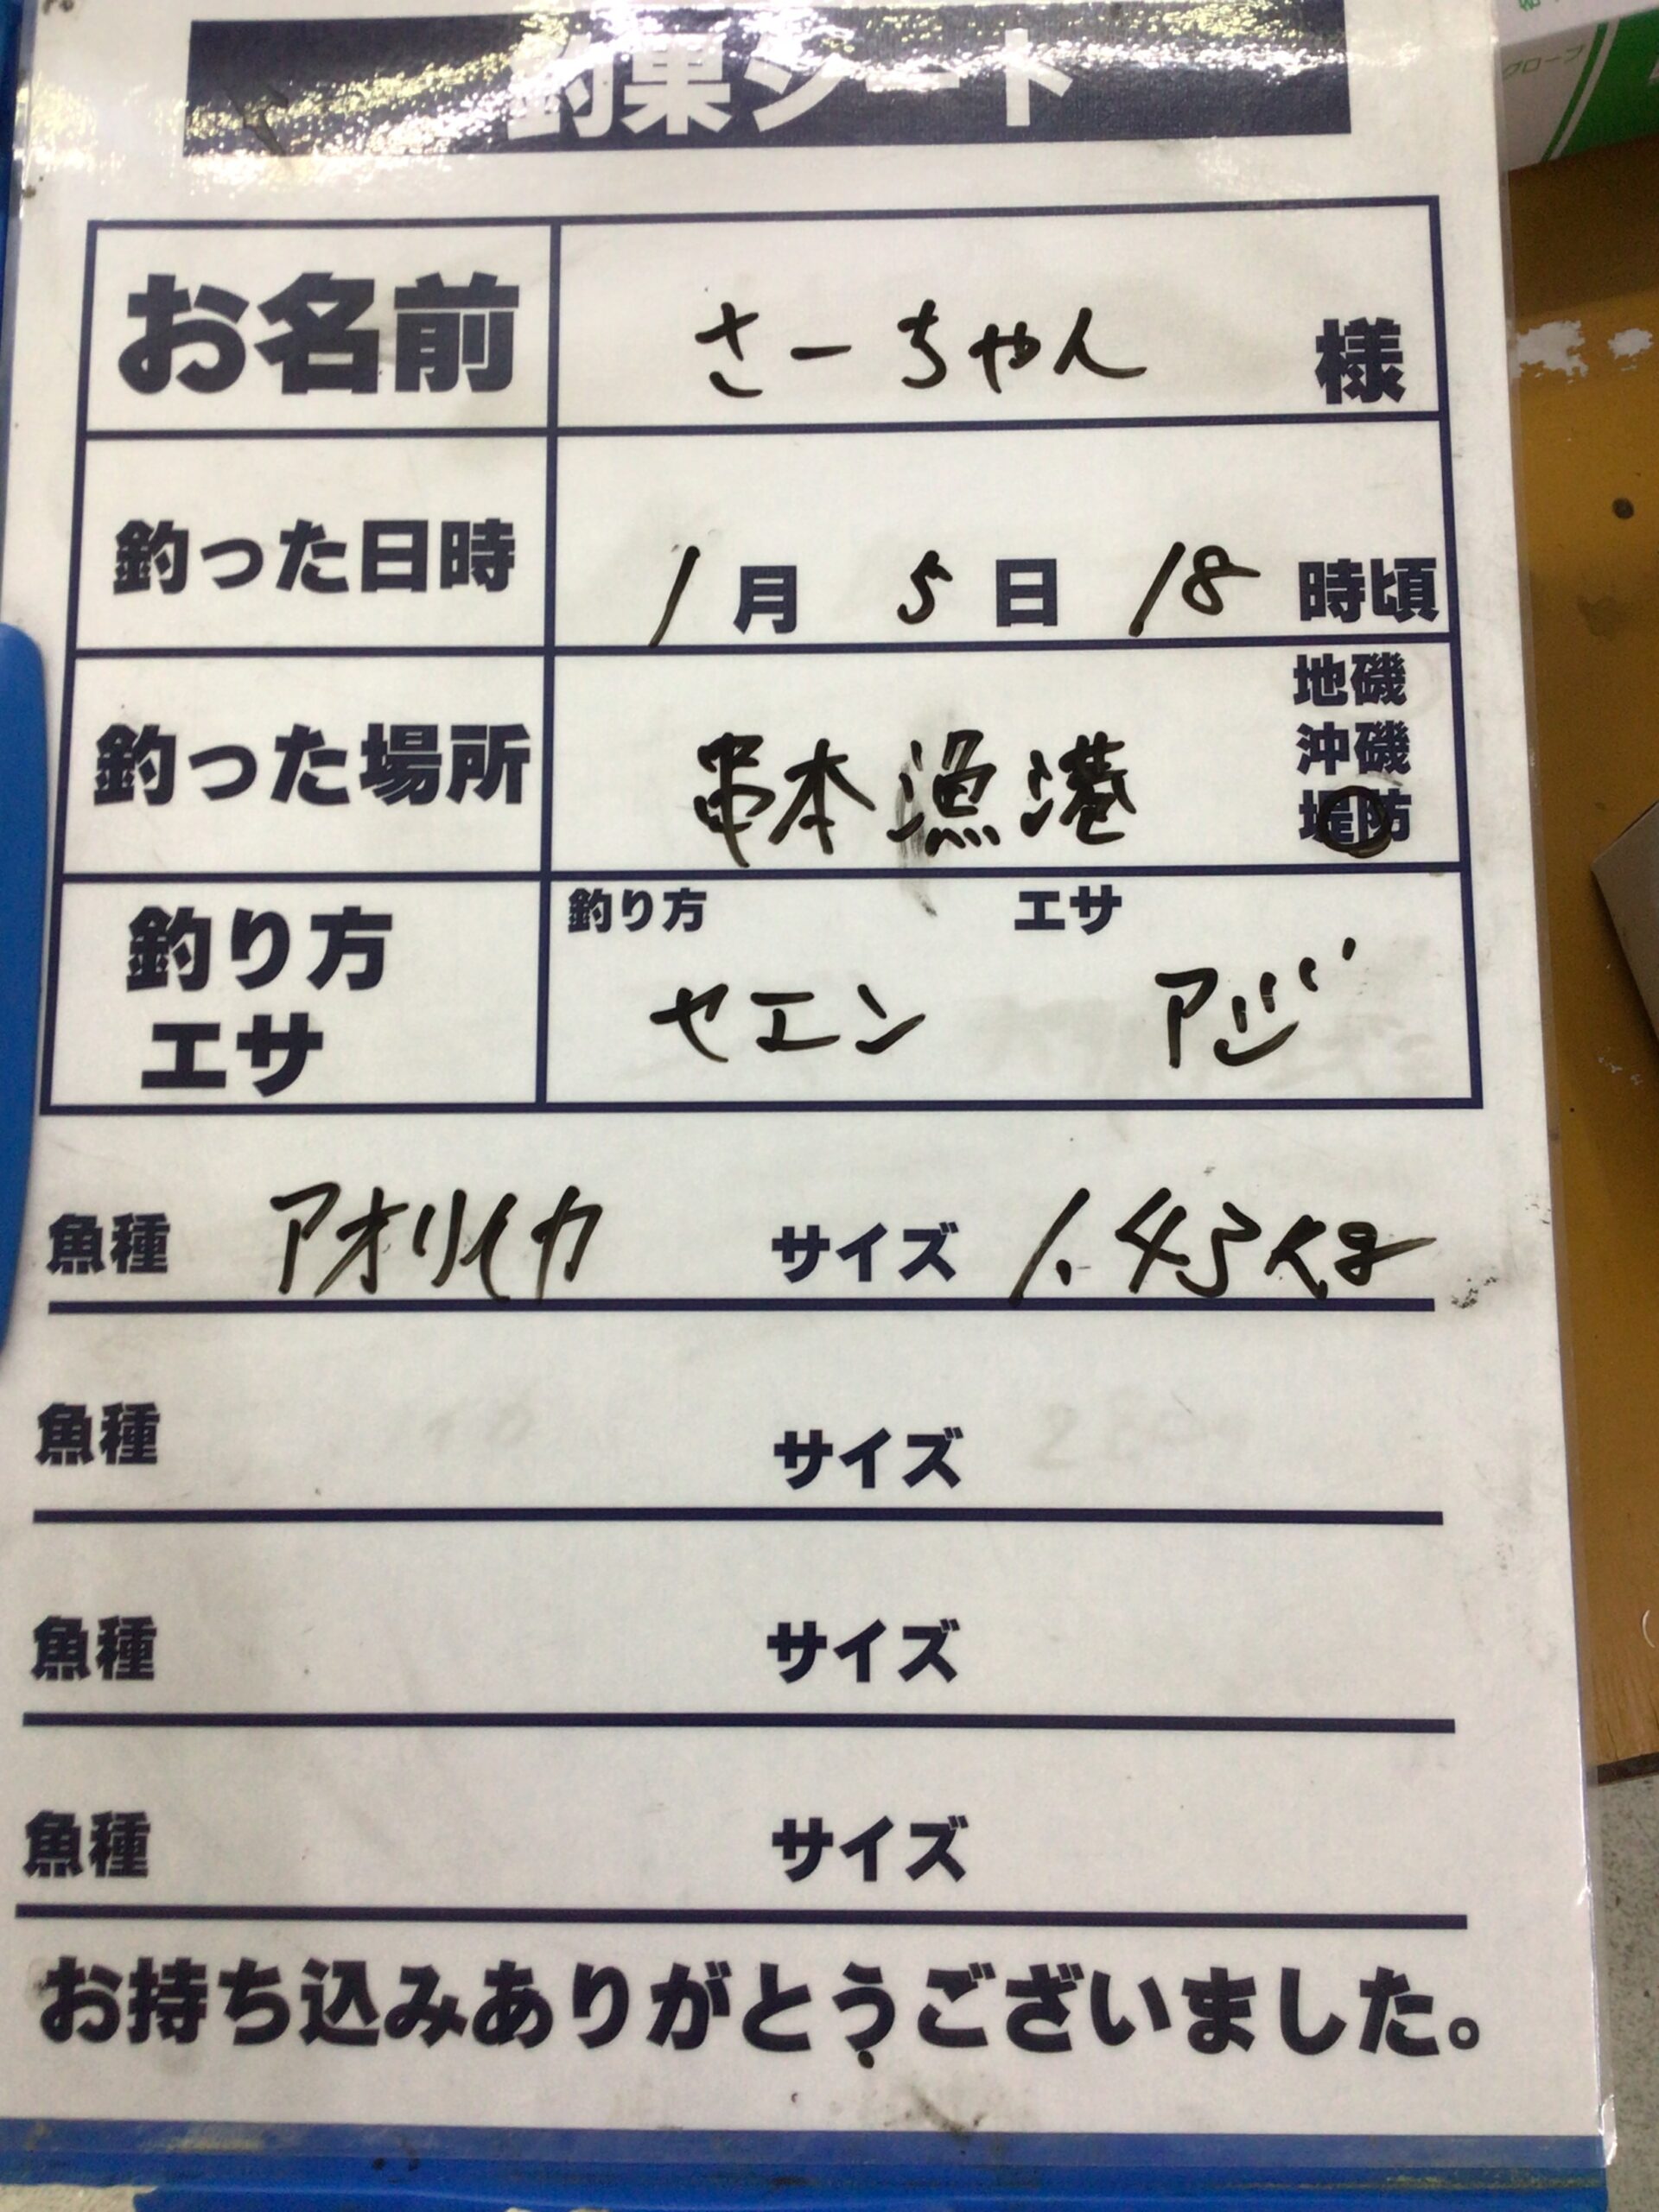 釣果シート
お名前 さーちゃん 様
釣った日時 1月 5日 18 時頃
釣った場所 串本漁港 地磯 沖磯 堤防
釣り方 エサ 釣り方 ヤエン エサ アジ
魚種 アオリイカ サイズ 1.43kg
魚種 サイズ
魚種 サイズ
魚種 サイズ
お持ち込みありがとうございました。
グローブ